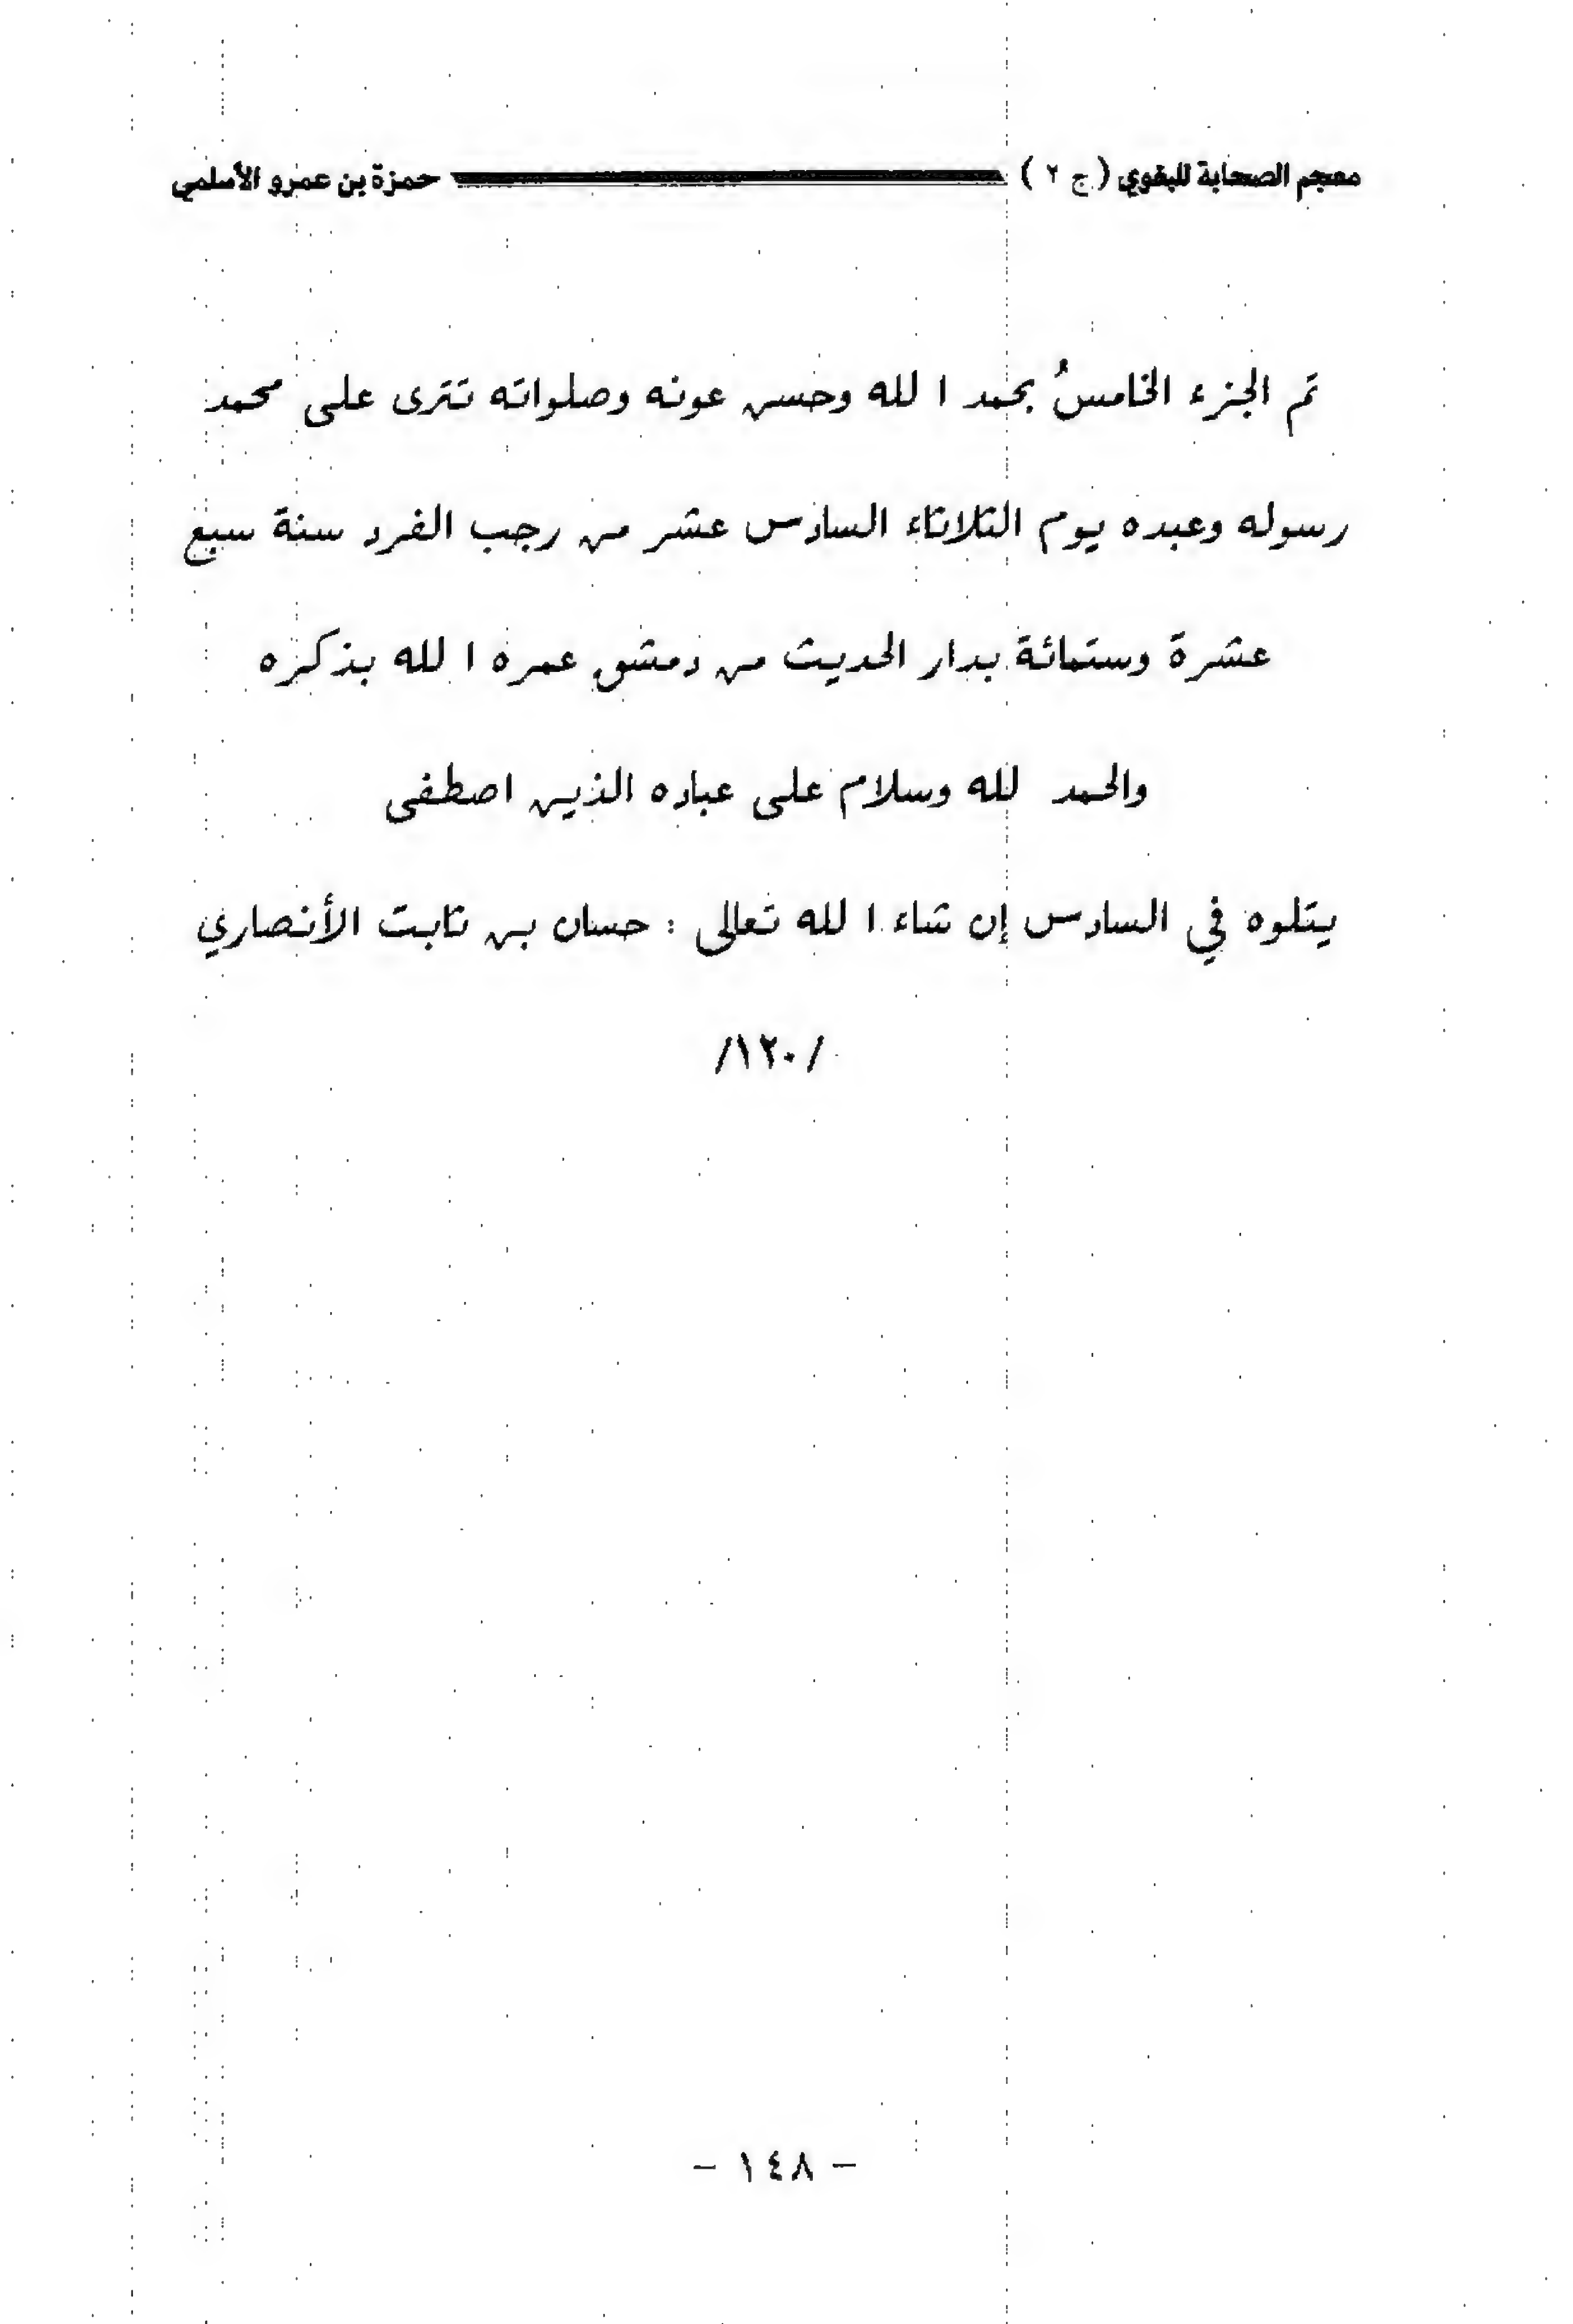 معجم الصحابة للبغوي ( ج ٢ ) حمزة بن عمرو الأسلمي
تم الجزء الخامسُ بحمد الله وحسن عونه وصلواته تترى على محمد
رسوله وعبده يوم الثلاثاء السادس عشر من رجب الفرد سنة سبع
عشرة وستمائة بدار الحديث من دمشق عمره الله بذكره
والحمد لله وسلام على عباده الذين اصطفى
يتلوه في السادس إن شاء الله تعالى : حسان بن ثابت الأنصاري
/١٢٠/
- ١٤٨ -